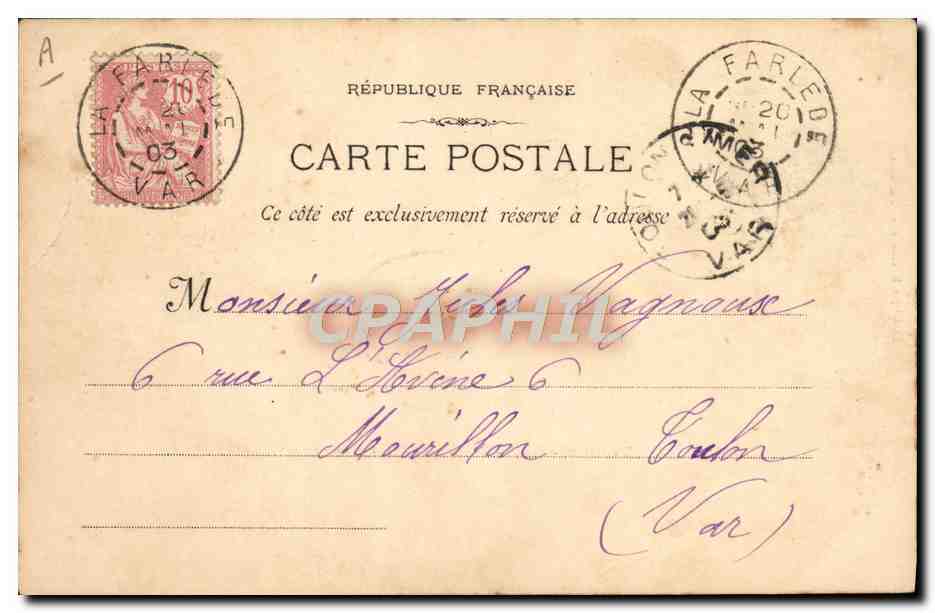 A
LA FARLEDE
10
20
MAI
03
VAR
LA FARLEDE
20
MAI
03
VAR
RÉPUBLIQUE FRANÇAISE
CARTE POSTALE
Ce côté est exclusivement réservé à l'adresse
TOULON S MER
VAR
Monsieur Jules Vagnoux
CPAPHIL
6 rue L'Hvéne 6
Mourillon Toulon
(Var)